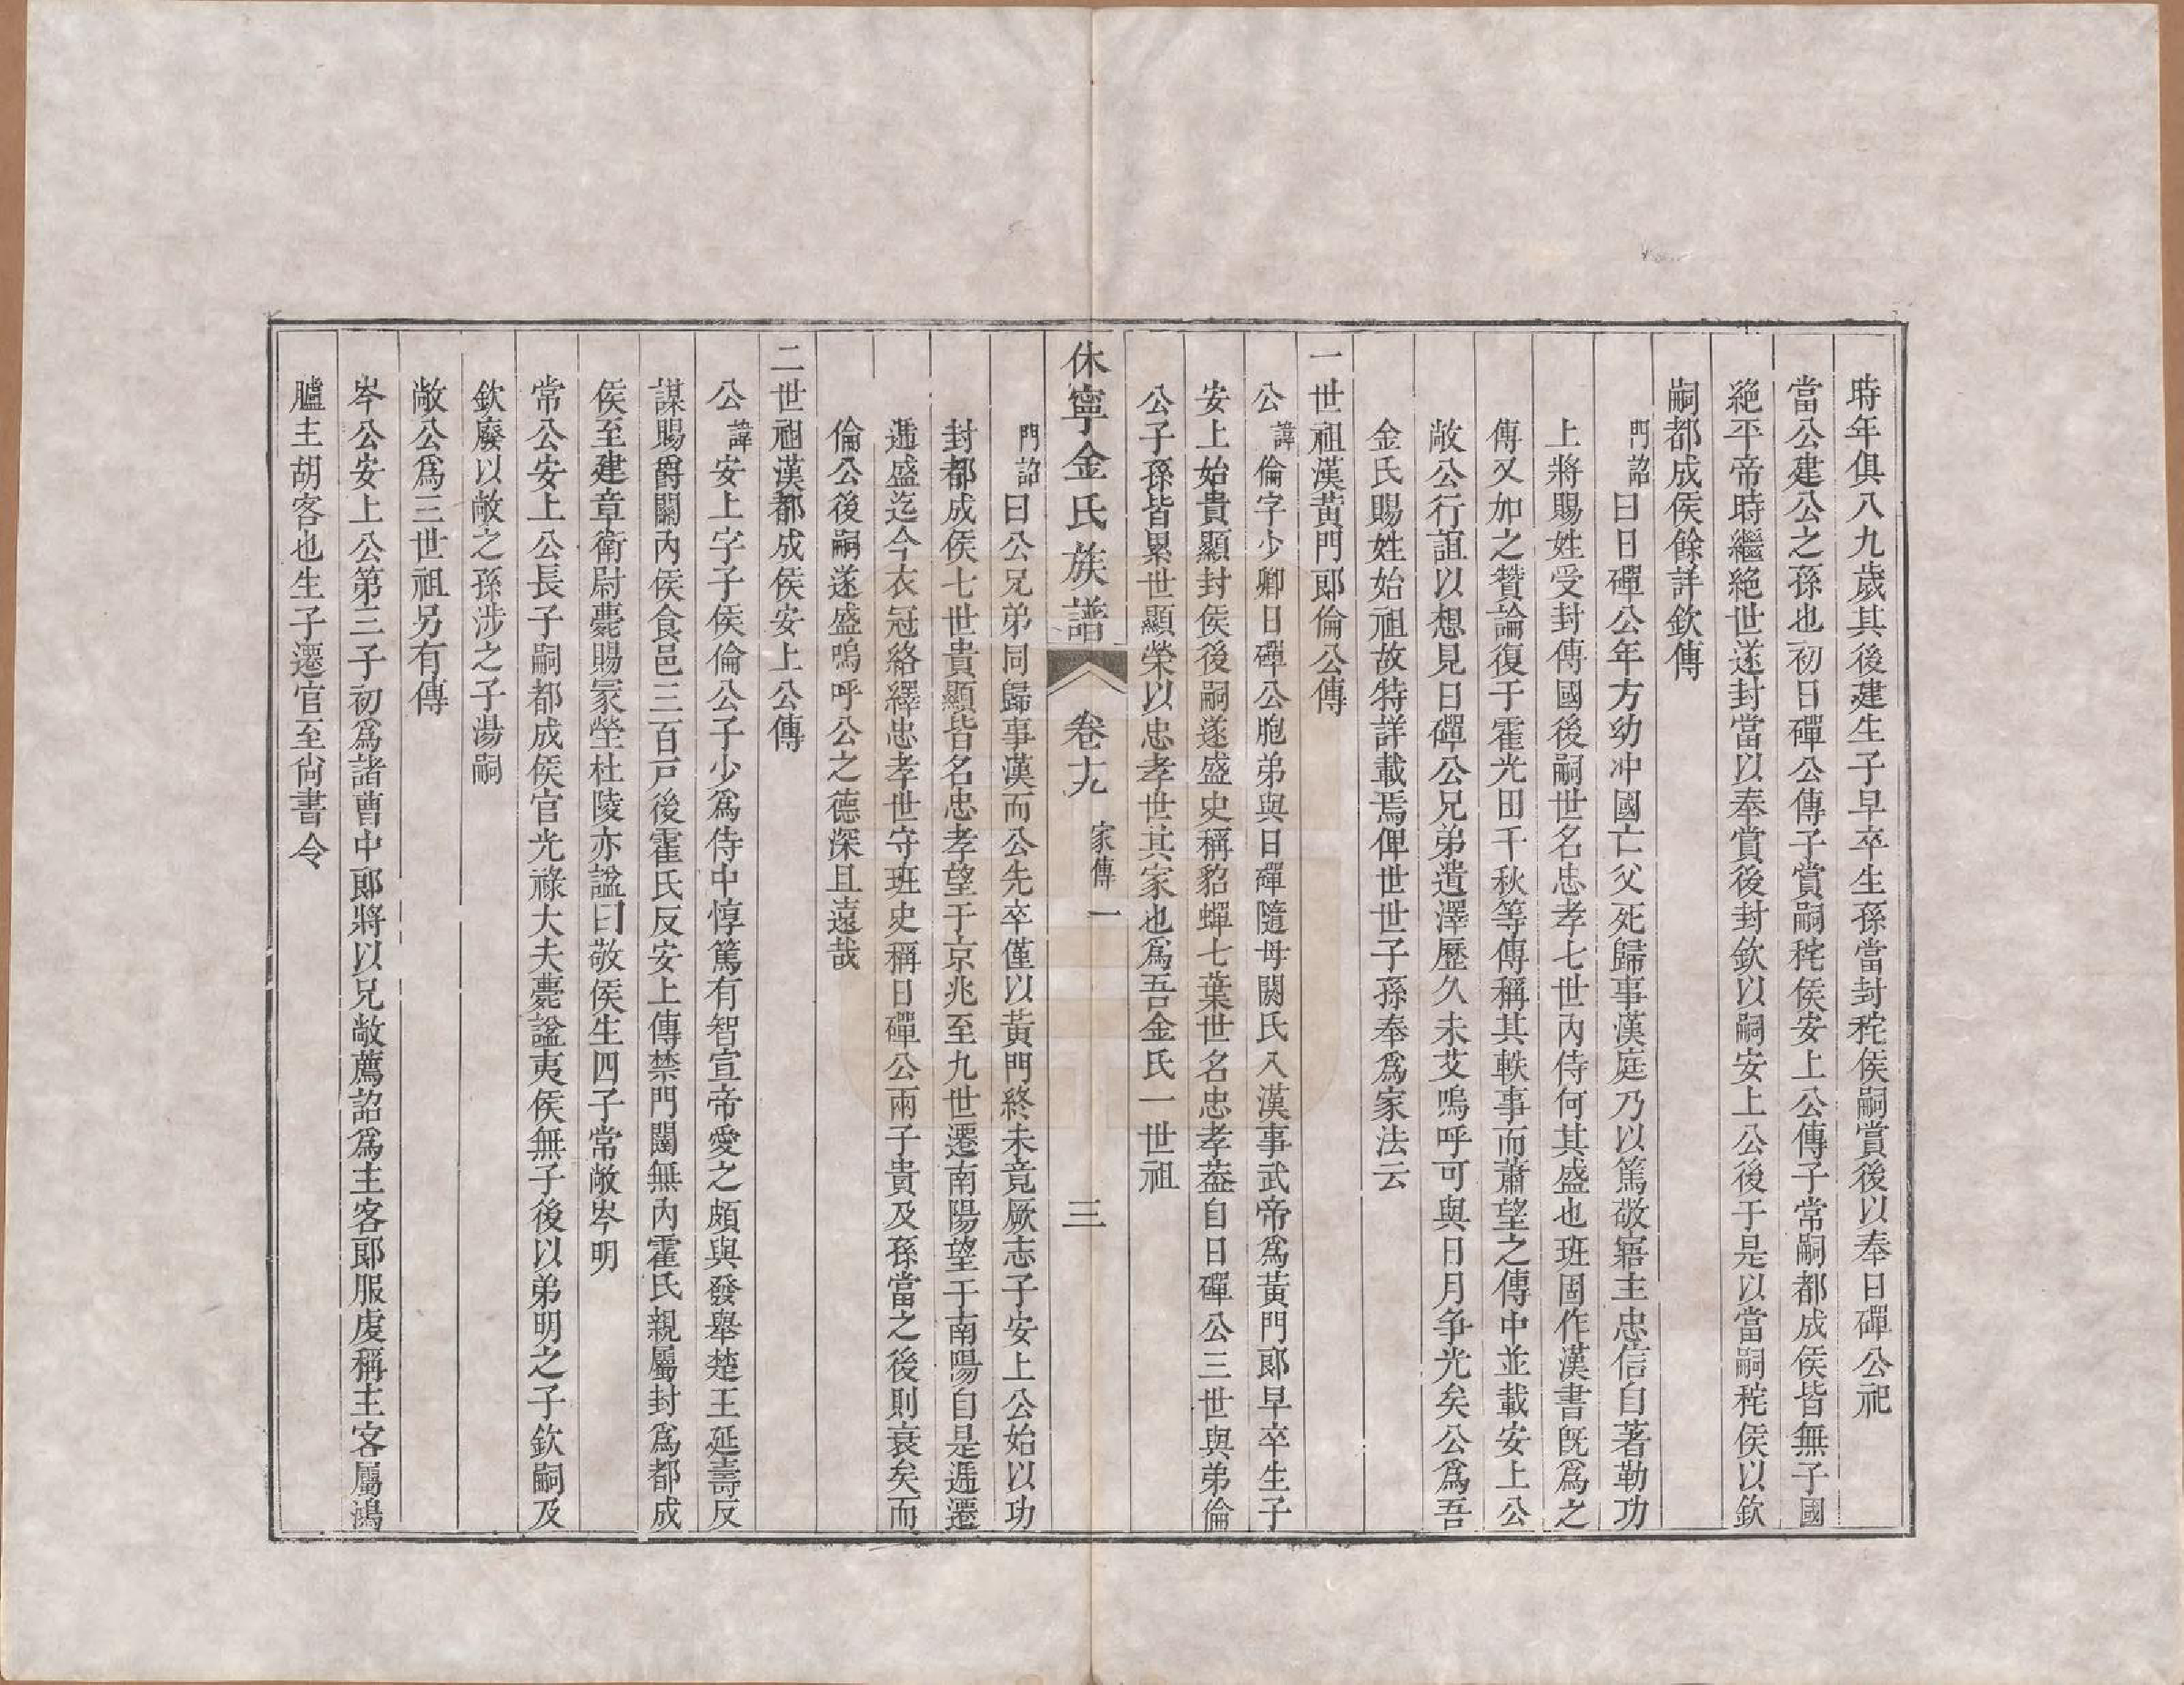 時年俱八九歲其後建生子早卒生孫當封秺侯嗣賞後以奉日磾公祀
當公建公之孫也初日磾公傳子賞嗣秺侯安上公傳子常嗣都成侯皆無子國
絕平帝時繼絕世遂封當以奉賞後封欽以嗣安上公後于是以當嗣秺侯以欽
嗣都成侯餘詳欽傳
門詔曰日磾公年方幼冲國亡父死歸事漢庭乃以篤敬寤主忠信自著勒功
上將賜姓受封傳國後嗣世名忠孝七世內侍何其盛也班固作漢書旣爲之
傳又加之贊論復于霍光田千秋等傳稱其軼事而蕭望之傳中並載安上公
敞公行誼以想見日磾公兄弟遺澤歷久未艾嗚呼可與日月争光矣公爲吾
金氏賜姓始祖故特詳載焉俾世世子孫奉爲家法云
一世祖漢黃門郎倫公傳
公諱倫字少卿日磾公胞弟與日磾隨母閼氏入漢事武帝爲黃門郎早卒生子
安上始貴顯封侯後嗣遂盛史稱貂蟬七葉世名忠孝葢自日磾公三世與弟倫
公子孫皆累世顯榮以忠孝世其家也爲吾金氏一世祖
休寧金氏族譜 卷十九 家傳一 三
門詔曰公兄弟同歸事漢而公先卒僅以黃門終未竟厥志子安上公始以功
封都成侯七世貴顯皆名忠孝望于京兆至九世遷南陽望于南陽自是遞遷
遞盛迄今衣冠絡繹忠孝世守班史稱日磾公兩子貴及孫當之後則衰矣而
倫公後嗣遂盛嗚呼公之德深且遠哉
二世祖漢都成侯安上公傳
公諱安上字子侯倫公子少爲侍中惇篤有智宣帝愛之頗與發舉楚王延壽反
謀賜爵關內侯食邑三百戸後霍氏反安上傳禁門闥無內霍氏親屬封爲都成
侯至建章衛尉薨賜冢塋杜陵亦諡曰敬侯生四子常敞岑明
常公安上公長子嗣都成侯官光祿大夫薨諡夷侯無子後以弟明之子欽嗣及
欽廢以敞之孫涉之子湯嗣
敞公爲三世祖另有傳
岑公安上公第三子初爲諸曹中郎將以兄敞薦詔爲主客郎服虔稱主客屬鴻
臚主胡客也生子遷官至尙書令